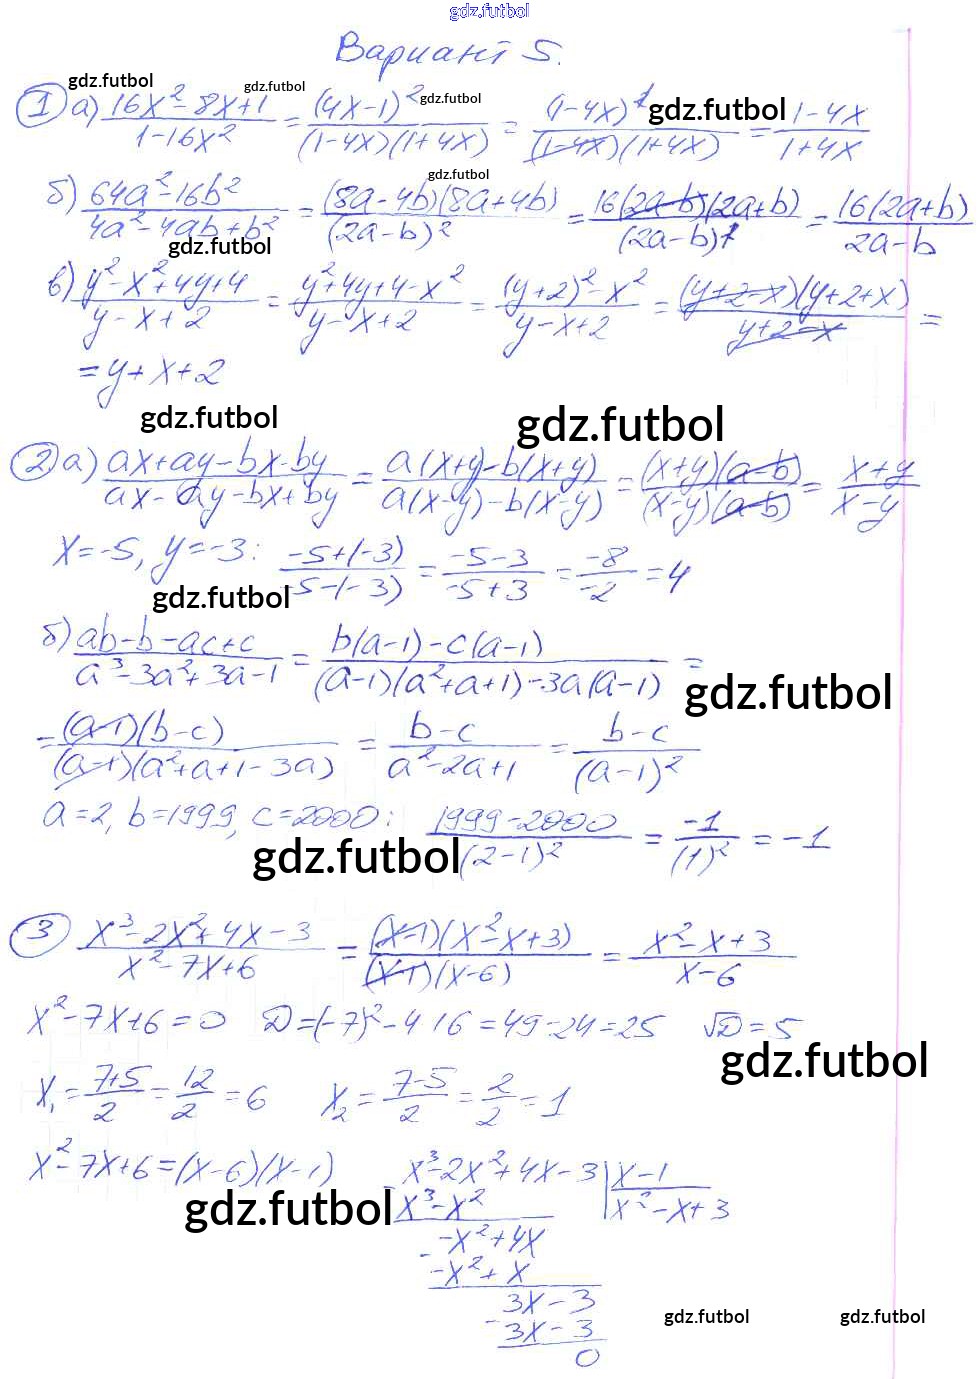 gdz.futbol
Вариант 5.
gdz.futbol gdz.futbol gdz.futbol gdz.futbol
① а) (16x² - 8x + 1)/(1 - 16x²) = (4x - 1)²/((1 - 4x)(1 + 4x)) = (1 - 4x)²/((1 - 4x)(1 + 4x)) = (1 - 4x)/(1 + 4x)
gdz.futbol
б) (64a² - 16b²)/(4a² - 4ab + b²) = ((8a - 4b)(8a + 4b))/(2a - b)² = (16(2a - b)(2a + b))/(2a - b)² = (16(2a + b))/(2a - b)
gdz.futbol
в) (y² - x² + 4y + 4)/(y - x + 2) = (y² + 4y + 4 - x²)/(y - x + 2) = ((y + 2)² - x²)/(y - x + 2) = ((y + 2 - x)(y + 2 + x))/(y + 2 - x) =
= y + x + 2
gdz.futbol gdz.futbol
② а) (ax + ay - bx - by)/(ax - ay - bx + by) = (a(x + y) - b(x + y))/(a(x - y) - b(x - y)) = ((x + y)(a - b))/((x - y)(a - b)) = (x + y)/(x - y)
x = -5, y = -3: (-5 + (-3))/(-5 - (-3)) = (-5 - 3)/(-5 + 3) = (-8)/(-2) = 4
gdz.futbol
б) (ab - b - ac + c)/(a³ - 3a² + 3a - 1) = (b(a - 1) - c(a - 1))/((a - 1)(a² + a + 1) - 3a(a - 1)) =
gdz.futbol
= ((a - 1)(b - c))/((a - 1)(a² + a + 1 - 3a)) = (b - c)/(a² - 2a + 1) = (b - c)/(a - 1)²
a = 2, b = 1999, c = 2000: (1999 - 2000)/(2 - 1)² = (-1)/(1)² = -1
gdz.futbol
③ (x³ - 2x² + 4x - 3)/(x² - 7x + 6) = ((x - 1)(x² - x + 3))/((x - 1)(x - 6)) = (x² - x + 3)/(x - 6)
x² - 7x + 6 = 0 D = (-7)² - 4·1·6 = 49 - 24 = 25 √D = 5
gdz.futbol
x₁ = (7+5)/2 = 12/2 = 6 x₂ = (7-5)/2 = 2/2 = 1
x² - 7x + 6 = (x - 6)(x - 1) x³ - 2x² + 4x - 3 | x - 1
gdz.futbol
x³ - x² | x² - x + 3
-x² + 4x
-x² + x
3x - 3
gdz.futbol gdz.futbol
3x - 3
0